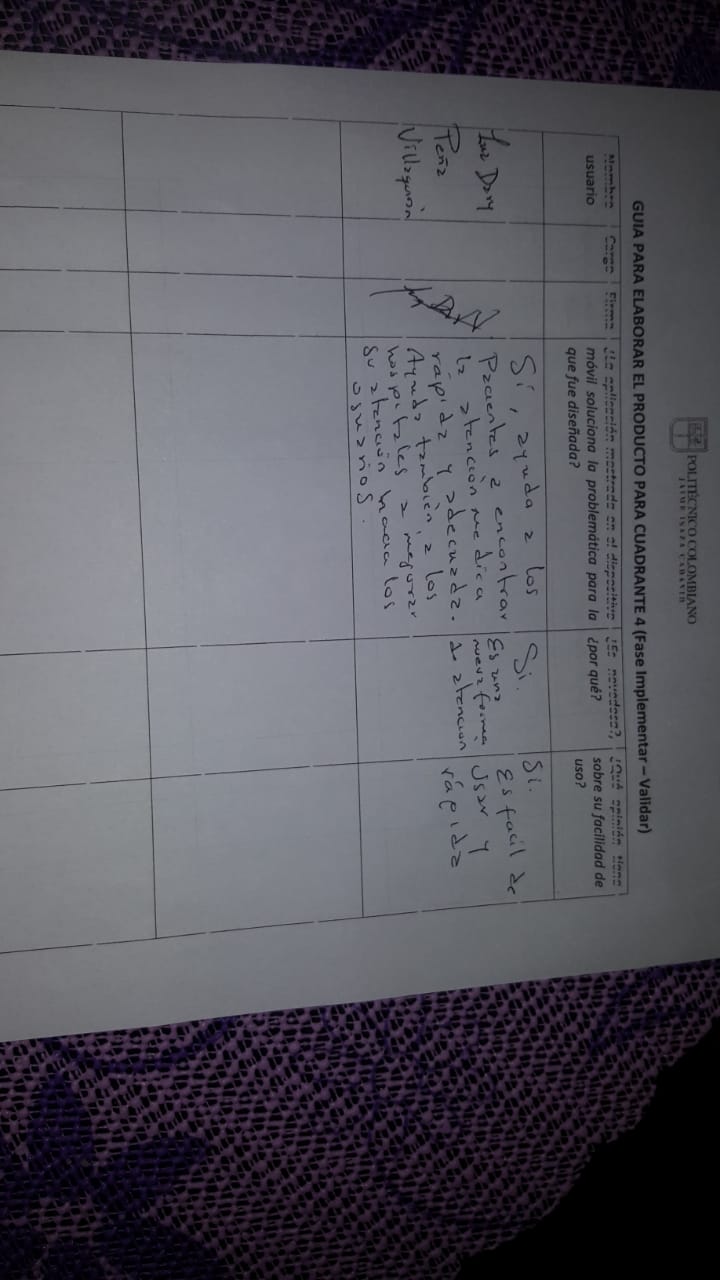 POLITÉCNICO COLOMBIANO
JAIME ISAZA CADAVID
GUIA PARA ELABORAR EL PRODUCTO PARA CUADRANTE 4 (Fase Implementar – Validar)
Nombre
usuario
Cargo
Firma
¿La aplicación mostrada en el dispositivo
móvil soluciona la problemática para la
que fue diseñada?
¿Es novedosa?
¿por qué?
¿Qué opinión tiene
sobre su facilidad de
uso?
Luz Dary
Peña
Villagrán
Sí, ayuda a los
Pacientes a encontrar
la atención medica
rápida y adecuada.
Ayuda también a los
hospitales a mejorar
su atención hacia los
usuarios.
Si.
Es una
nueva forma
de atencion
Si.
Es facil de
Usar y
rápida